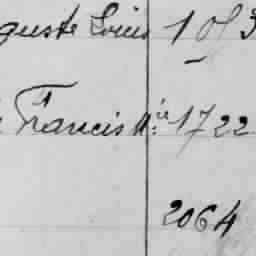 guste Louis 103
Francis M.ie 1722
2064